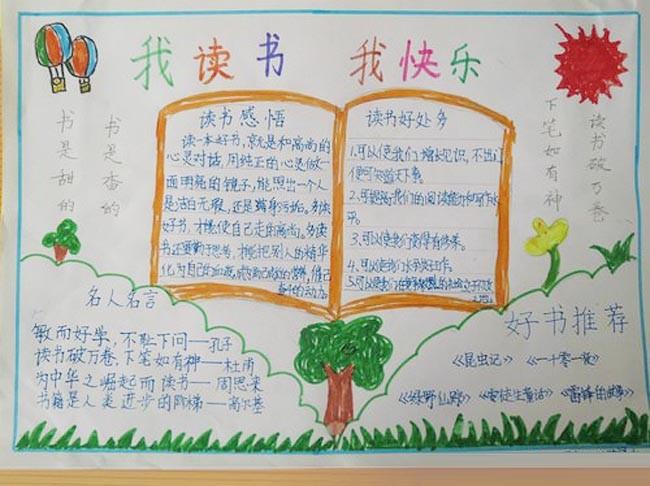 我读书 我快乐
书是香的
书是甜的
读书破万卷
下笔如有神
读书感悟
读一本好书,就是和高尚的
心灵对话,用纯正的心灵做一
面明亮的镜子,能照出一个人
是洁白无瑕,还是满身污垢。多读
好书,才能使自己走向高尚。多读
书还要勤于思考,才能把别人的精华
化为自己的血液,成为自己成长的营养,催己
奋斗的动力。
读书好处多
1.可以使我们增长见识,不出门
便可知道天下事。
2.可提高我们的阅读能力和写作水
平。
3.可以使我们变得有修养。
4.可以使我们
5.可以使我们
名人名言
敏而好学,不耻下问——孔子
读书破万卷,下笔如有神——杜甫
为中华之崛起而读书——周恩来
书籍是人类进步的阶梯——高尔基
好书推荐
《昆虫记》 《一千零一夜》
《绿野仙踪》 《安徒生童话》 《雷锋的故事》